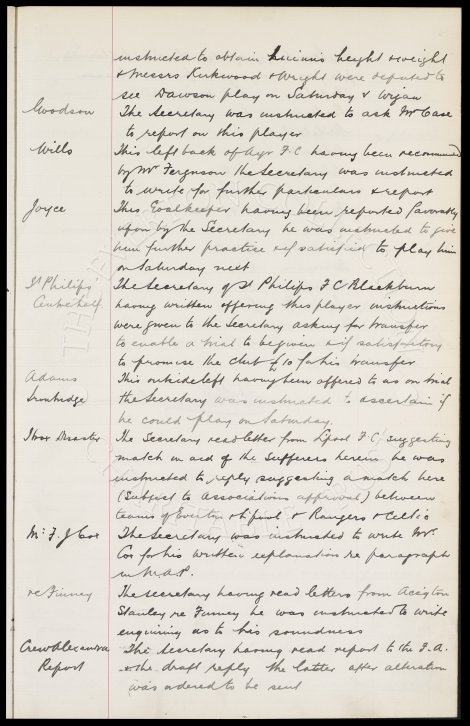 instructed to obtain Luciani's height & weight
& Messrs Kirkwood & Wright were deputed to
see Dawson play on Saturday v Wigan
Goodson The Secretary was instructed to ask Mr Case
to report on this player
Wills This left back of Ayr F.C having been recommended
by Mr Ferguson the Secretary was instructed
to write for further particulars & report
Joyce This Goalkeeper having been reported favorably
upon by the Secretary he was instructed to give
him further practice & if satisfied to play him
on Saturday next
St Philips The Secretary of St Philips F C Blackburn
Centrehalf having written offering this player instructions
were given to the Secretary asking for transfer
to enable a trial to be given & if satisfactory
to promise the club £10 for his transfer
Adams This outside left having been offered to us on trial
Ironbridge the Secretary was instructed to ascertain if
he could play on Saturday.
Ibrox Disaster The Secretary read letter from Lpool F C, suggesting
match in aid of the sufferers herein he was
instructed to reply suggesting a match here
(subject to associations approval) between
teams of Everton & Lpool & Rangers & Celtic
Mr F. J Cox The Secretary was instructed to write Mr
Cox for his written explanation re paragraph
in M.A.P.
re Finney The Secretary having read letters from Accrington
Stanley re Finney he was instructed to write
enquiring as to his soundness
Crewe Alexandra The Secretary having read report to the F.A.
Report & the draft reply the latter after alteration
was ordered to be sent